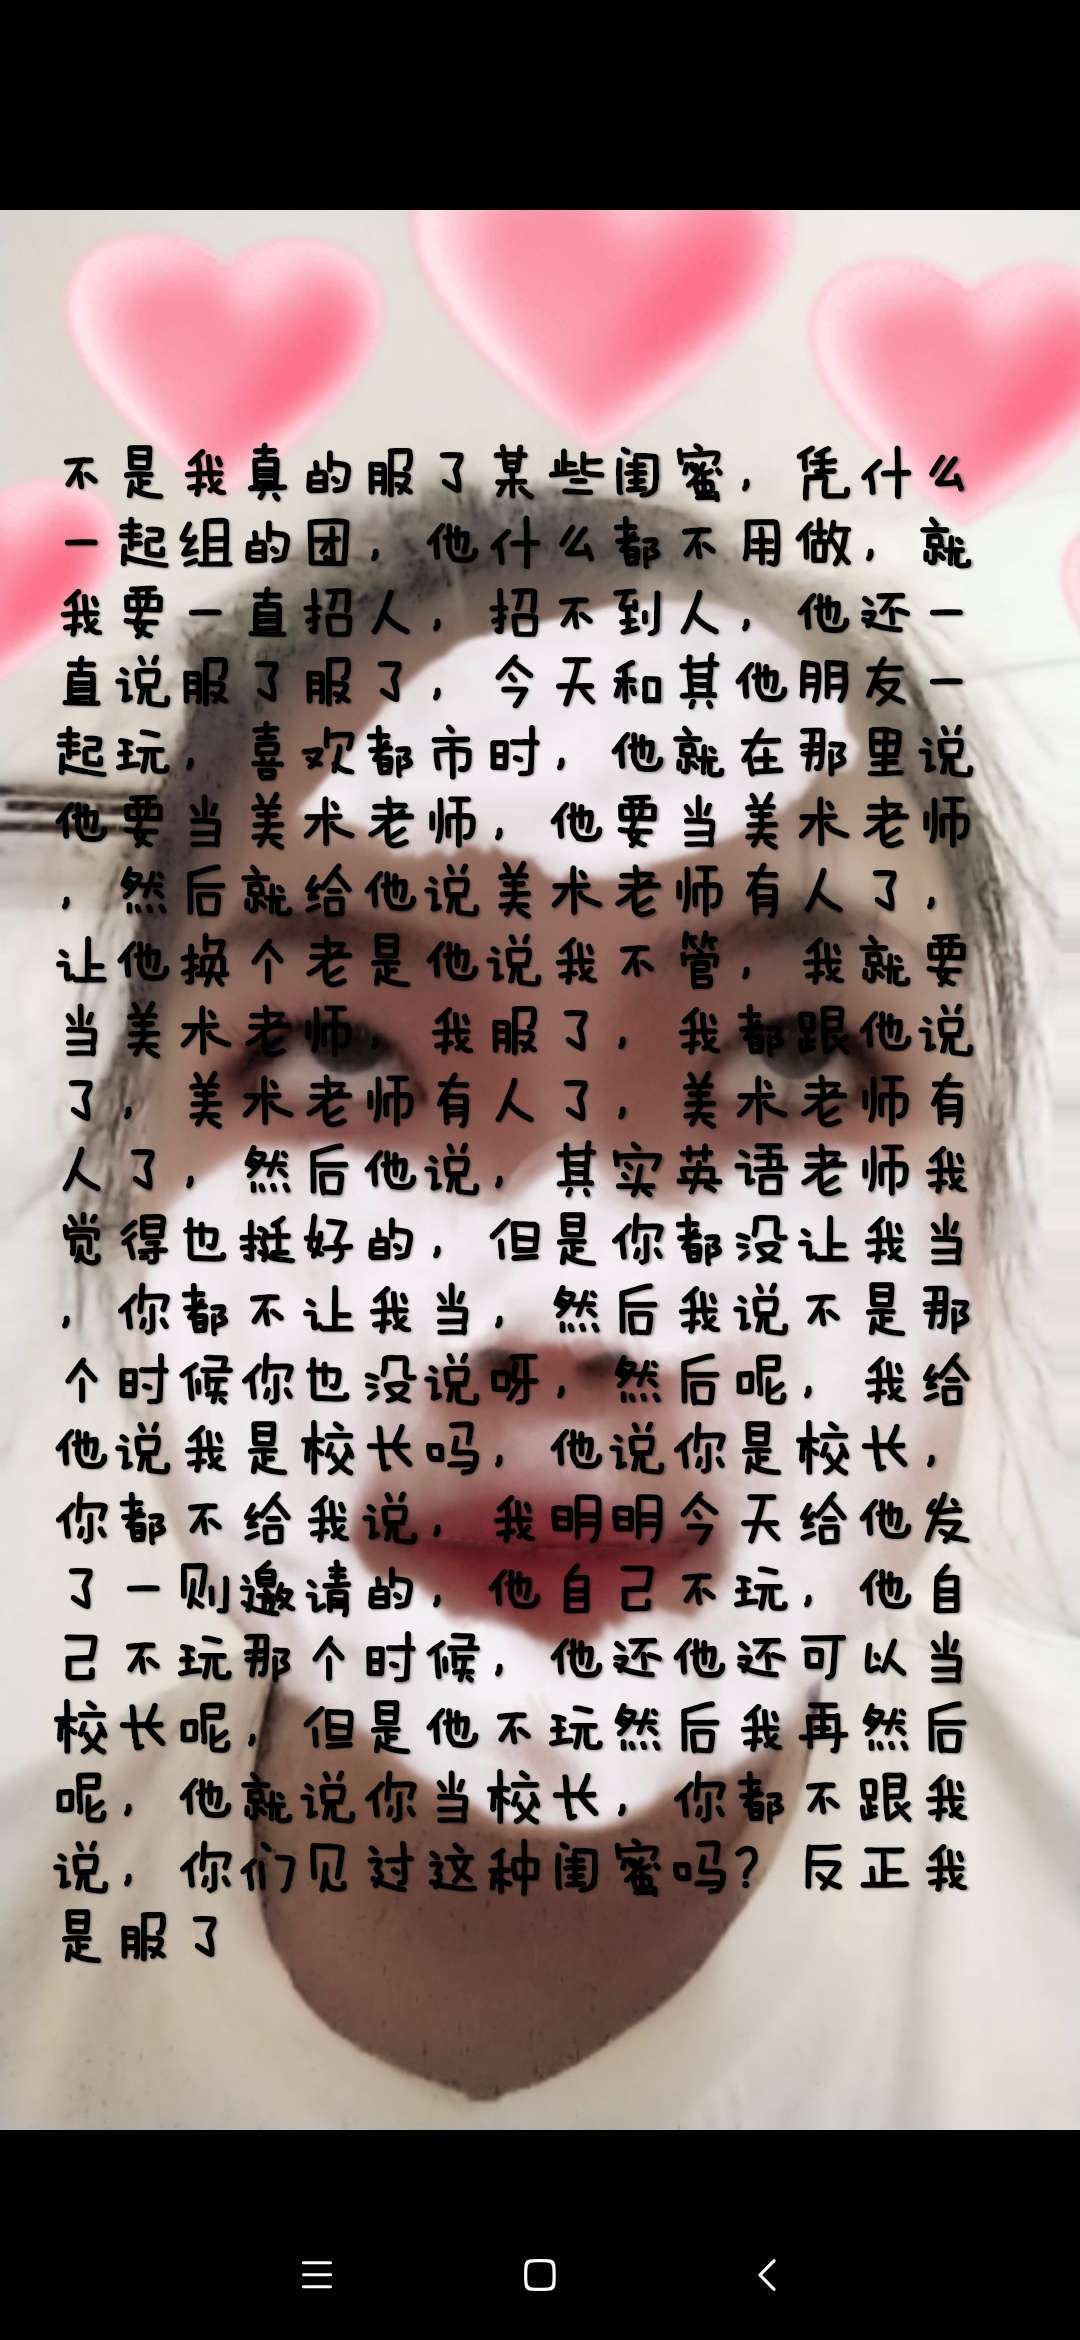 不是我真的服了某些闺蜜，凭什么
一起组的团，他什么都不用做，就
我要一直招人，招不到人，他还一
直说服了服了，今天和其他朋友一
起玩，喜欢都市时，他就在那里说
他要当美术老师，他要当美术老师
，然后就给他说美术老师有人了，
让他换个老是他说我不管，我就要
当美术老师，我服了，我都跟他说
了，美术老师有人了，美术老师有
人了，然后他说，其实英语老师我
觉得也挺好的，但是你都没让我当
，你都不让我当，然后我说不是那
个时候你也没说呀，然后呢，我给
他说我是校长吗，他说你是校长，
你都不给我说，我明明今天给他发
了一则邀请的，他自己不玩，他自
己不玩那个时候，他还他还可以当
校长呢，但是他不玩然后我再然后
呢，他就说你当校长，你都不跟我
说，你们见过这种闺蜜吗？反正我
是服了